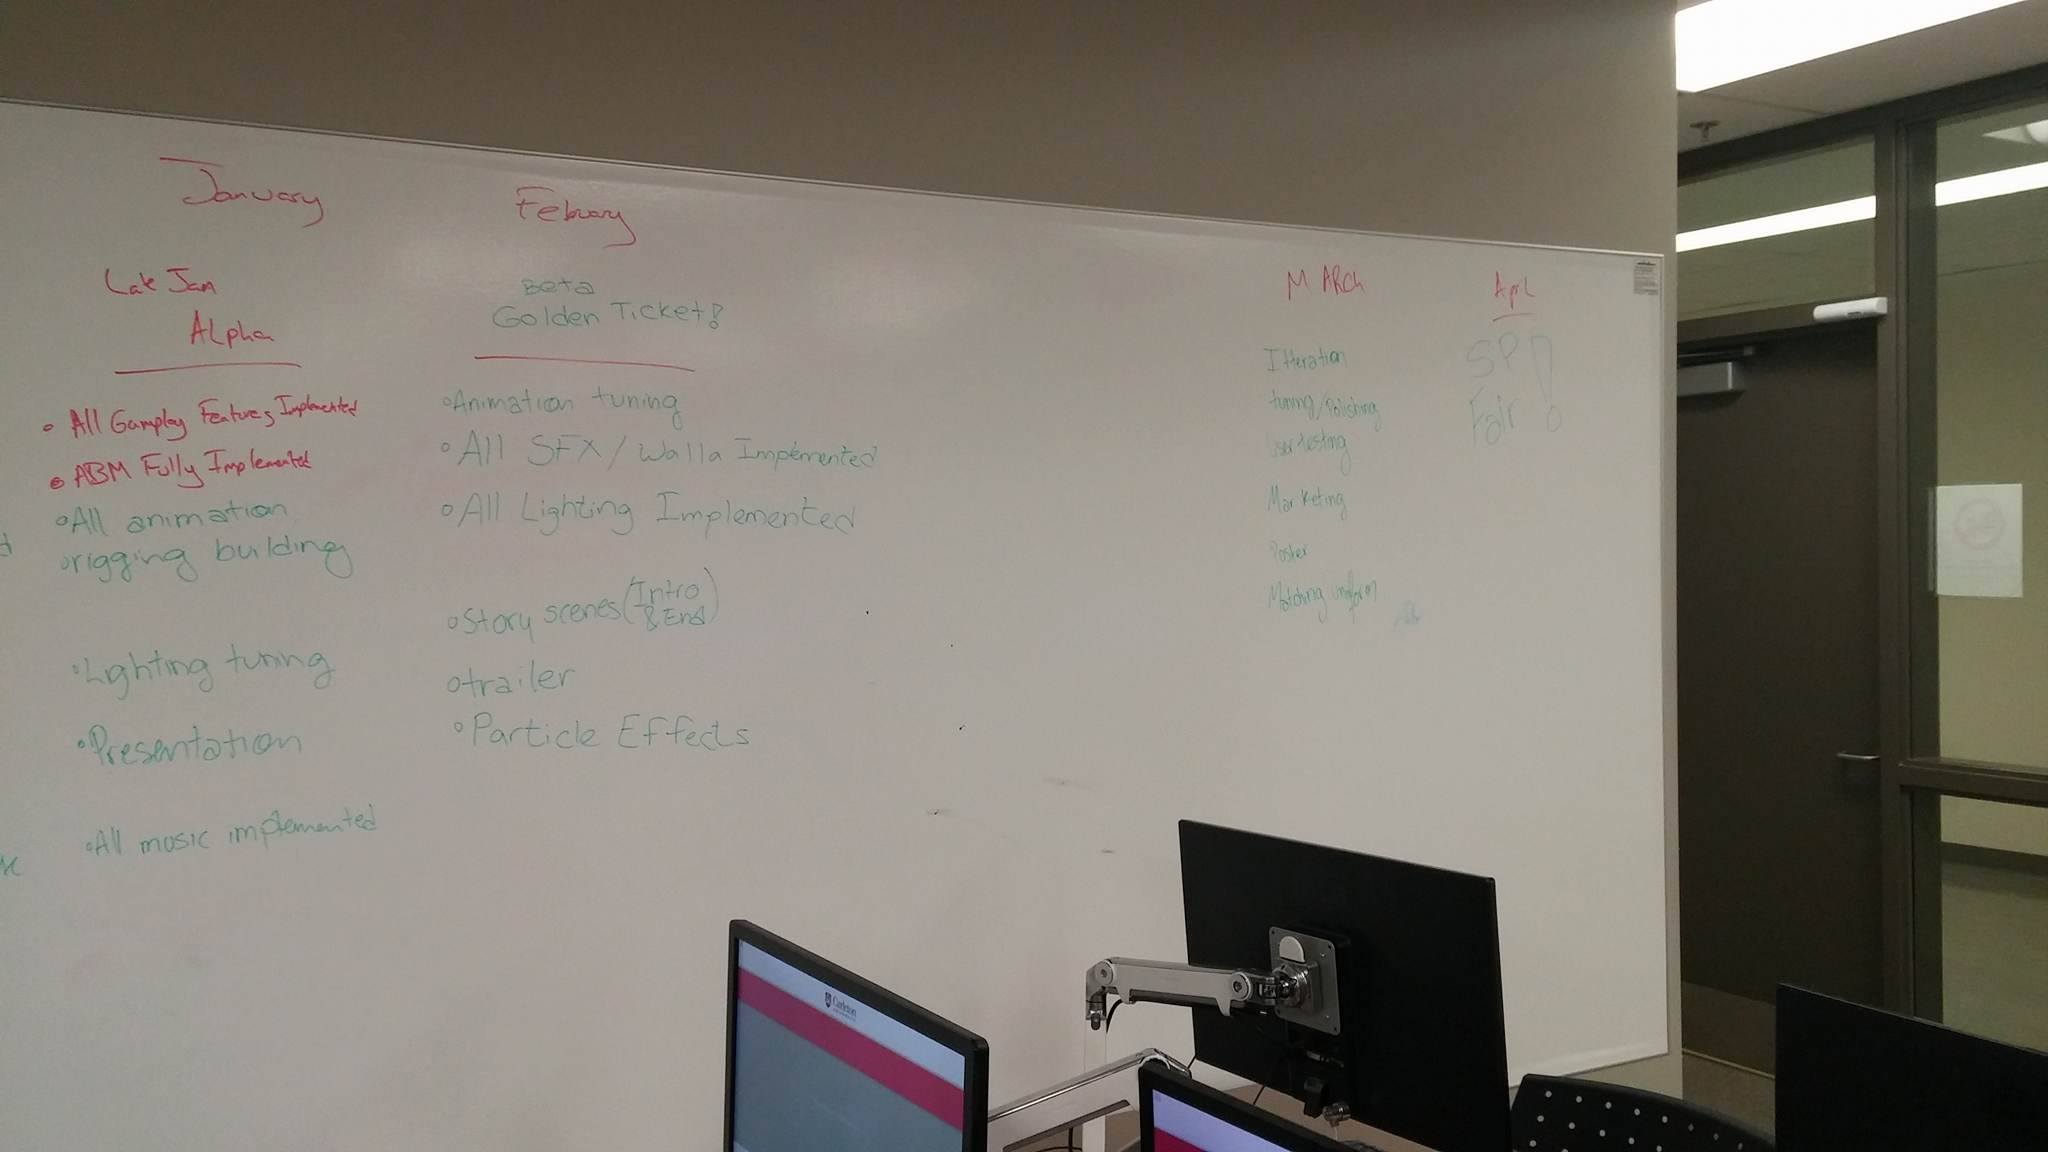 January
Late Jan
Alpha
• All Gameplay Features Implemented
• ABM Fully Implemented
• All animation
• rigging building
• Lighting tuning
• Presentation
• All music implemented
Febuary
Beta
Golden Ticket!
• Animation tuning
• All SFX / Walla Implemented
• All Lighting Implemented
• Story scenes (Intro
& End)
• trailer
• Particle Effects
MARch
Itteration
tuning/Polishing
User testing
Marketing
Poster
Matching uniform
April
SP
Fair!
Carleton